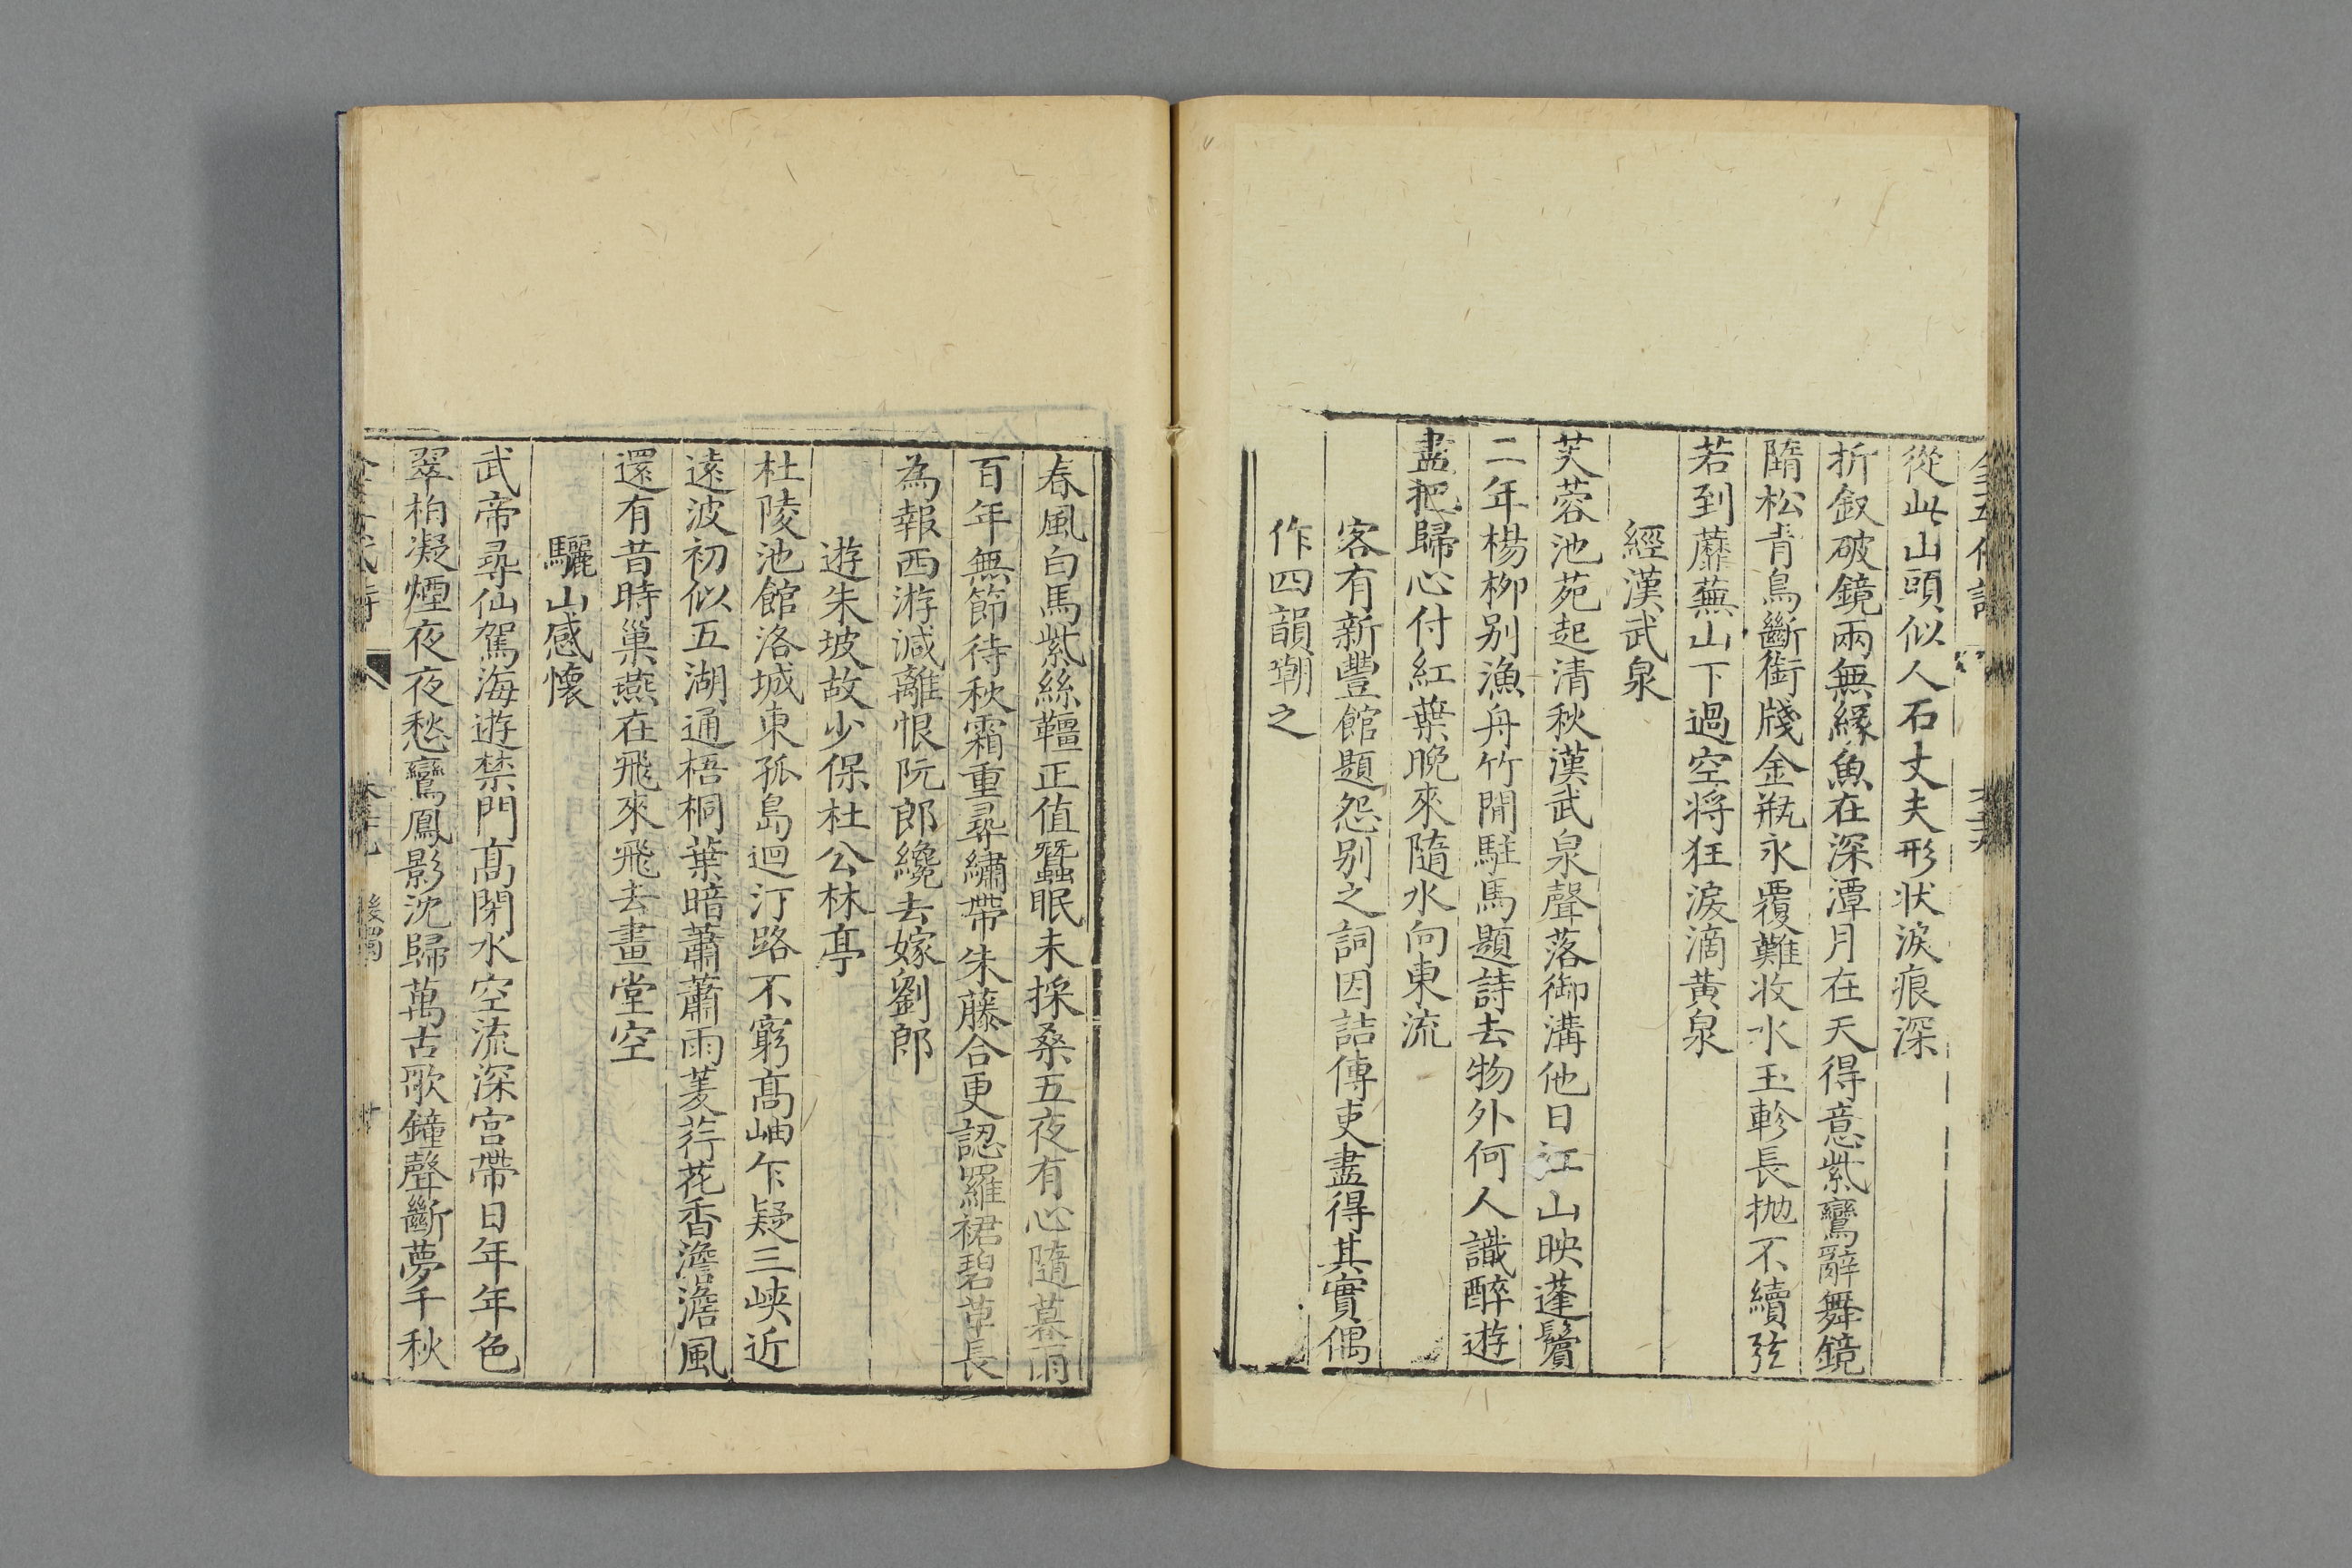 從此山頭似人石丈夫形状淚痕深
折釵破鏡兩無緣魚在深潭月在天得意紫鸞辭舞鏡
隋松青鳥斷銜牋金瓶永覆難收水玉軫長抛不續弦
若到蘼蕪山下過空将狂淚滴黃泉
經漢武泉
芙蓉池苑起清秋漢武泉聲落御溝他日江山映蓬鬢
二年楊栁别漁舟竹閒駐馬題詩去物外何人識醉遊
盡把歸心付紅葉晚來隨水向東流
客有新豐館題怨别之詞因詰傳吏盡得其實偶
作四韻嘲之
春風白馬紫絲韁正值蠶眠未採桑五夜有心隨暮雨
百年無節待秋霜重尋繡帶朱藤合更認羅裙碧草長
為報西游減離恨阮郎纔去嫁劉郎
遊朱坡故少保杜公林亭
杜陵池館洛城東孤島迴汀路不窮髙岫乍疑三峡近
遠波初似五湖通梧桐葉暗蕭蕭雨菱荇花香澹澹風
還有昔時巢燕在飛來飛去畫堂空
驪山感懷
武帝尋仙駕海遊禁門髙閉水空流深宫帶日年年色
翠柏凝煙夜夜愁鸞鳳影沈歸萬古歌鐘聲斷夢千秋